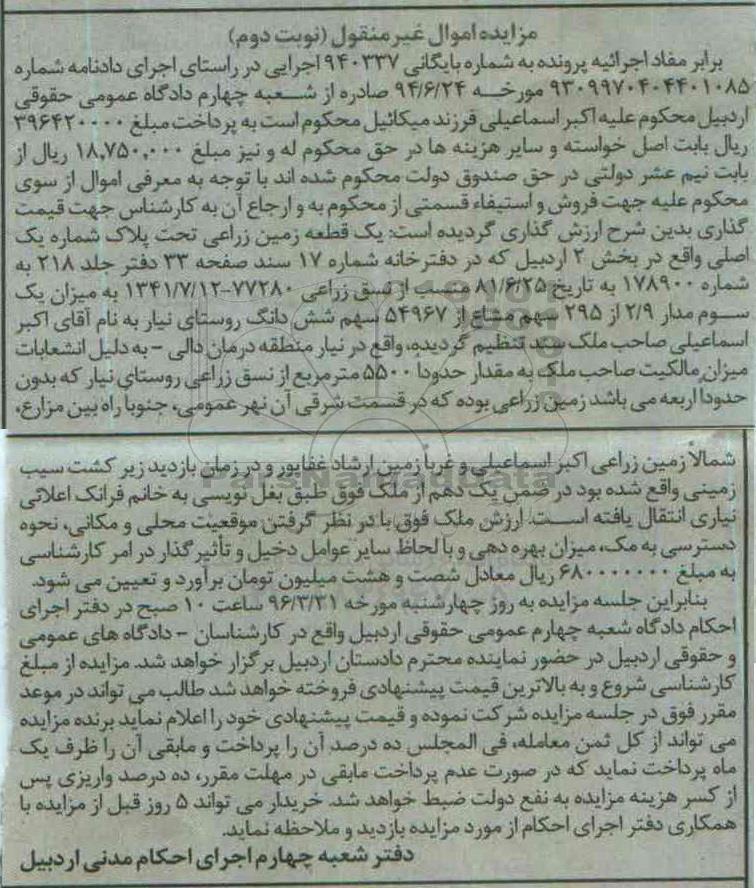 مزایده اموال غیر منقول (نوبت دوم)
برابر مفاد اجرائیه پرونده به شماره بایگانی ۹۴۰۳۳۷ اجرایی در راستای اجرای دادنامه شماره
۹۳۰۹۹۷۰۴۰۴۴۰۱۰۸۵ مورخه ۹۴/۶/۲۴ صادره از شعبه چهارم دادگاه عمومی حقوقی
اردبیل محکوم علیه اکبر اسماعیلی فرزند میکائیل محکوم است به پرداخت مبلغ ۳۹۶۴۲۰۰۰۰
ریال بابت اصل خواسته و سایر هزینه ها در حق محکوم له و نیز مبلغ ۱۸,۷۵۰,۰۰۰ ریال از
بابت نیم عشر دولتی در حق صندوق دولت محکوم شده اند با توجه به معرفی اموال از سوی
محکوم علیه جهت فروش و استیفاء قسمتی از محکوم به و ارجاع آن به کارشناس جهت قیمت
گذاری بدین شرح ارزش گذاری گردیده است: یک قطعه زمین زراعی تحت پلاک شماره یک
اصلی واقع در بخش ۲ اردبیل که در دفترخانه شماره ۱۷ سند صفحه ۳۳ دفتر جلد ۲۱۸ به
شماره ۱۷۸۹۰۰ به تاریخ ۸۱/۶/۲۵ منسب از نسق زراعی ۷۷۲۸۰-۱۳۴۱/۷/۱۲ به میزان یک
سوم مدار ۲/۹ از ۲۹۵ سهم مشاع از ۵۴۹۶۷ سهم شش دانگ روستای نیار به نام آقای اکبر
اسماعیلی صاحب ملک سند تنظیم گردیده، واقع در نیار منطقه درمان دالی - به دلیل انشعابات
میزان مالکیت صاحب ملک به مقدار حدودا ۵۵۰۰ مترمربع از نسق زراعی روستای نیار که بدون
حدوداً اربعه می باشد زمین زراعی بوده که در قسمت شرقی آن نهر عمومی، جنوبا راه بین مزارع،
شمالاً زمین زراعی اکبر اسماعیلی و غرباً زمین ارشاد غفاپور و در زمان بازدید زیر کشت سیب
زمینی واقع شده بود در ضمن یک دهم از ملک فوق طبق بغل نویسی به خانم فرانک اعلائی
نیاری انتقال یافته است. ارزش ملک فوق با در نظر گرفتن موقعیت محلی و مکانی، نحوه
دسترسی به مک، میزان بهره دهی و با لحاظ سایر عوامل دخیل و تأثیرگذار در امر کارشناسی
به مبلغ ۶۸۰۰۰۰۰۰۰ ریال معادل شصت و هشت میلیون تومان برآورد و تعیین می شود.
بنابراین جلسه مزایده به روز چهارشنبه مورخه ۹۶/۳/۳۱ ساعت ۱۰ صبح در دفتر اجرای
احکام دادگاه شعبه چهارم عمومی حقوقی اردبیل واقع در کارشناسان - دادگاه های عمومی
و حقوقی اردبیل در حضور نماینده محترم دادستان اردبیل برگزار خواهد شد. مزایده از مبلغ
کارشناسی شروع و به بالاترین قیمت پیشنهادی فروخته خواهد شد طالب می تواند در موعد
مقرر فوق در جلسه مزایده شرکت نموده و قیمت پیشنهادی خود را اعلام نماید برنده مزایده
می تواند از کل ثمن معامله، فی المجلس ده درصد آن را پرداخت و مابقی آن را ظرف یک
ماه پرداخت نماید که در صورت عدم پرداخت مابقی در مهلت مقرر، ده درصد واریزی پس
از کسر هزینه مزایده به نفع دولت ضبط خواهد شد. خریدار می تواند ۵ روز قبل از مزایده با
همکاری دفتر اجرای احکام از مورد مزایده بازدید و ملاحظه نماید.
دفتر شعبه چهارم اجرای احکام مدنی اردبیل
ParsNamadData